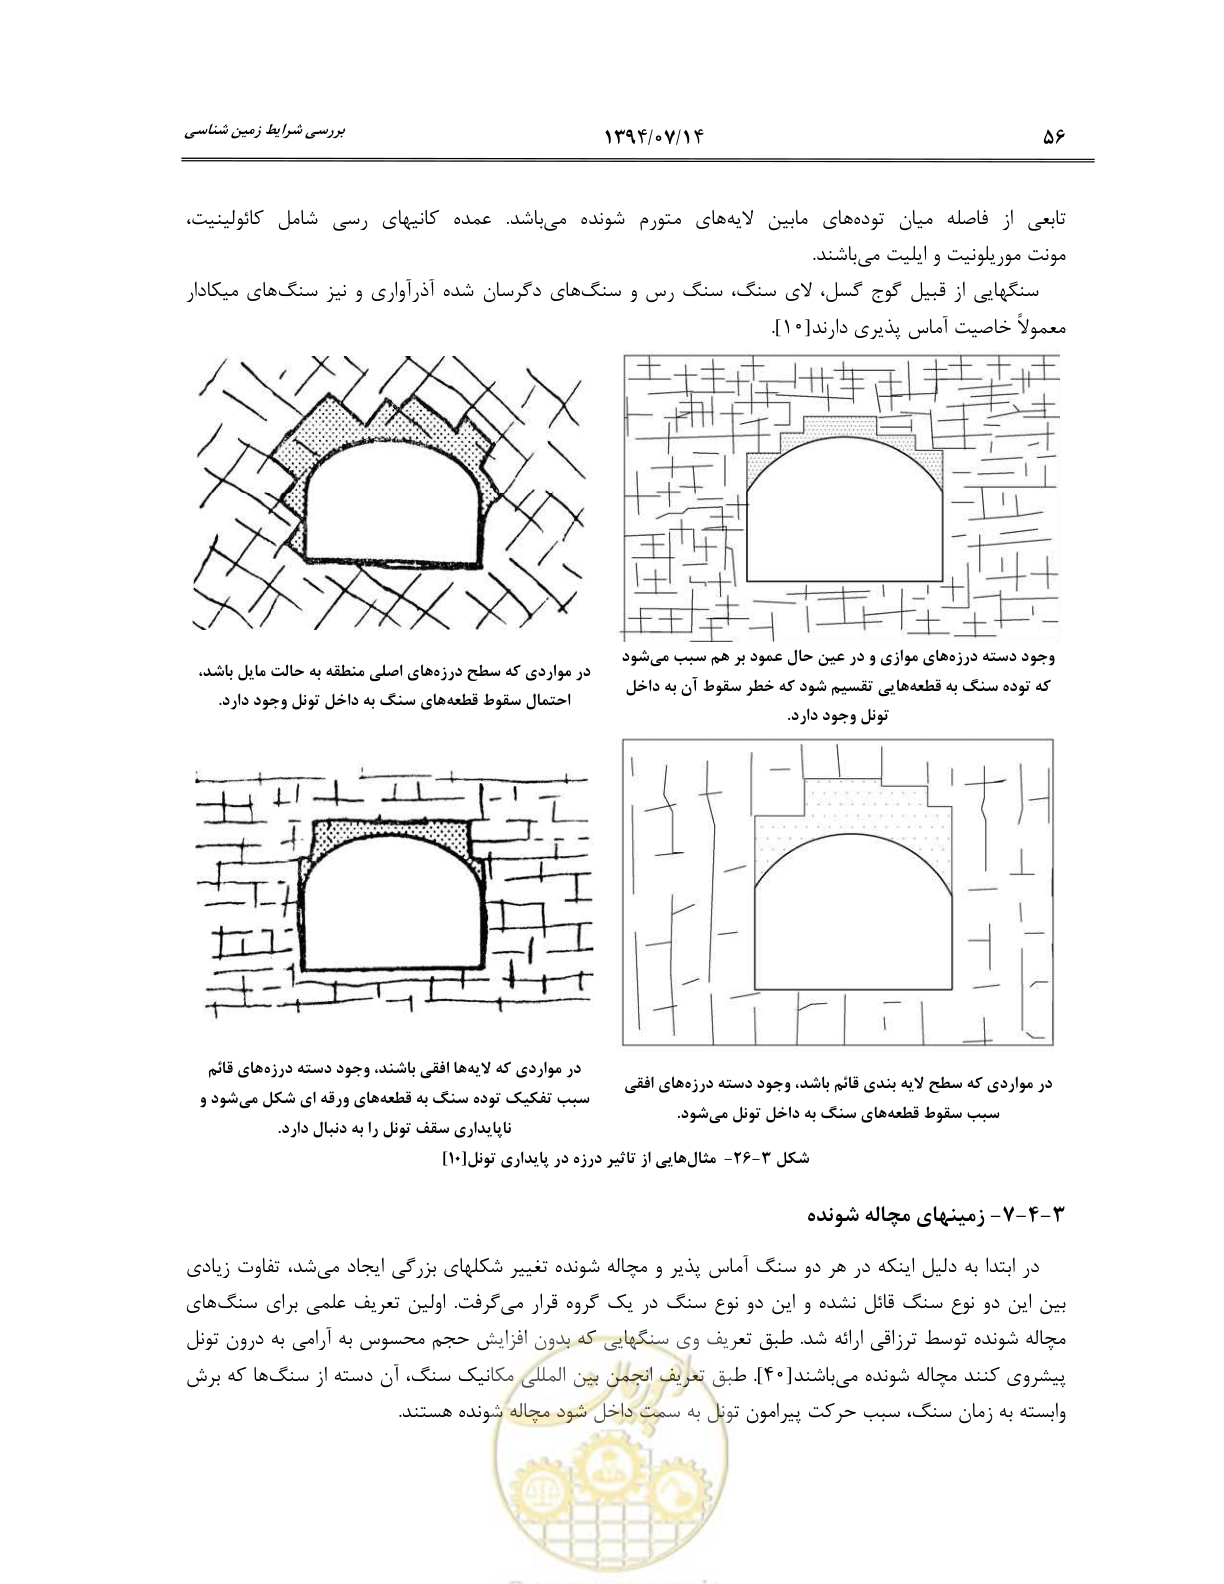 ۵۶ ۱۳۹۴/۰۷/۱۴ بررسی شرایط زمین شناسی
تابعی از فاصله میان توده‌های مابین لایه‌های متورم شونده می‌باشد. عمده کانیهای رسی شامل کائولینیت،
مونت موریلونیت و ایلیت می‌باشند.
سنگهایی از قبیل گوج گسل، لای سنگ، سنگ رس و سنگ‌های دگرسان شده آذرآواری و نیز سنگ‌های میکادار
معمولاً خاصیت آماس پذیری دارند[۱۰].
وجود دسته درزه‌های موازی و در عین حال عمود بر هم سبب می‌شود
که توده سنگ به قطعه‌هایی تقسیم شود که خطر سقوط آن به داخل
تونل وجود دارد.
در مواردی که سطح درزه‌های اصلی منطقه به حالت مایل باشد،
احتمال سقوط قطعه‌های سنگ به داخل تونل وجود دارد.
در مواردی که سطح لایه بندی قائم باشد، وجود دسته درزه‌های افقی
سبب سقوط قطعه‌های سنگ به داخل تونل می‌شود.
در مواردی که لایه‌ها افقی باشند، وجود دسته درزه‌های قائم
سبب تفکیک توده سنگ به قطعه‌های ورقه ای شکل می‌شود و
ناپایداری سقف تونل را به دنبال دارد.
شکل ۳-۲۶- مثال‌هایی از تاثیر درزه در پایداری تونل[۱۰]
۳-۴-۷- زمینهای مچاله شونده
در ابتدا به دلیل اینکه در هر دو سنگ آماس پذیر و مچاله شونده تغییر شکلهای بزرگی ایجاد می‌شد، تفاوت زیادی
بین این دو نوع سنگ قائل نشده و این دو نوع سنگ در یک گروه قرار می‌گرفت. اولین تعریف علمی برای سنگ‌های
مچاله شونده توسط ترزاقی ارائه شد. طبق تعریف وی سنگهایی که بدون افزایش حجم محسوس به آرامی به درون تونل
پیشروی کنند مچاله شونده می‌باشند[۴۰]. طبق تعریف انجمن بین المللی مکانیک سنگ، آن دسته از سنگ‌ها که برش
وابسته به زمان سنگ، سبب حرکت پیرامون تونل به سمت داخل شود مچاله شونده هستند.